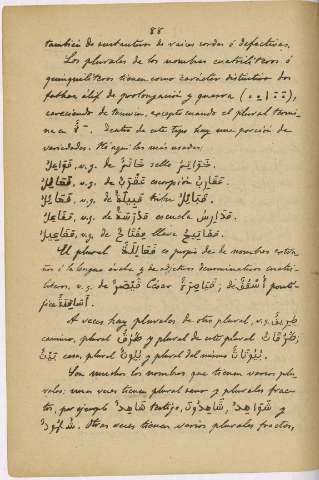 88
también de sustantivos de raices sordas ó defectivas.
Los plurales de los nombres cuatrilíteros ó
quinquelíteros tienen como carácter distintivo dos
fathas, élif de prolongación y quesra
careciendo de tanuin, excepto cuando el plural termi-
na en ةٌ. Dentro de este tipo hay una porción de
variedades. He aquí las mas usadas:
فَوَاعِلُ, v.g. de خَاتَمٌ sello خَوَاتِمُ.
فَعَالِلُ, v.g. de عَقْرَبٌ escorpión عَقَارِبُ.
فَعَائِلُ, v.g. de قَبِيلَةٌ tribu قَبَائِلُ.
مَفَاعِلُ, v.g. de مَدْرَسَةٌ escuela مَدَارِسُ.
مَفَاعِيلُ, v.g. de مِفْتَاحٌ llave مَفَاتِيحُ.
El plural فَعَالِلَةٌ es propio de de nombres extra-
ños á la lengua árabe y de adjetivos denominativos cuatri-
líteros, v.g. de قَيْصَرٌ César قَيَاصِرَةٌ; de أُسْقُفٌ pontí-
fice أَسَاقِفَةٌ.
A veces hay plurales de otro plural, v.g. طَرِيقٌ
camino, plural طُرُقٌ y plural de este plural طُرُقَاتٌ;
بَيْتٌ casa, plural بُيُوتٌ y plural del mismo بُيُوتَاتٌ.
Son muchos los nombres que tienen varios plu-
rales: unas veces tienen plural sano y plurales frac-
tos, por ejemplo شَاهِدٌ testigo, شَاهِدُونَ, شَوَاهِدُ y
شُهُودٌ. Otras veces tienen varios plurales fractos,